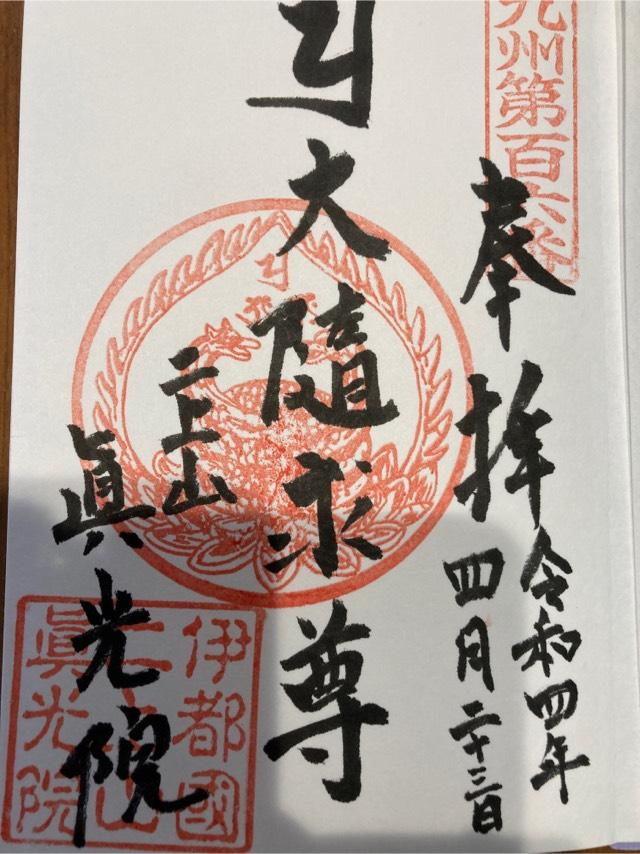 九州第百六番
奉拝
令和四年
四月二十三日
大隨求尊
二上山
眞光院
伊都國
二上山
眞光院